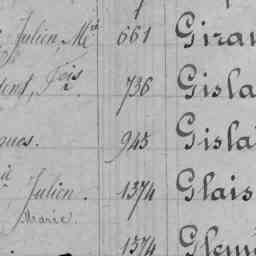 Julien, Mie 661 Giran
Fois 736 Gisla
ques. 945 Gisla
à Julien. 1374 Glais
Marie.
1374 Glem